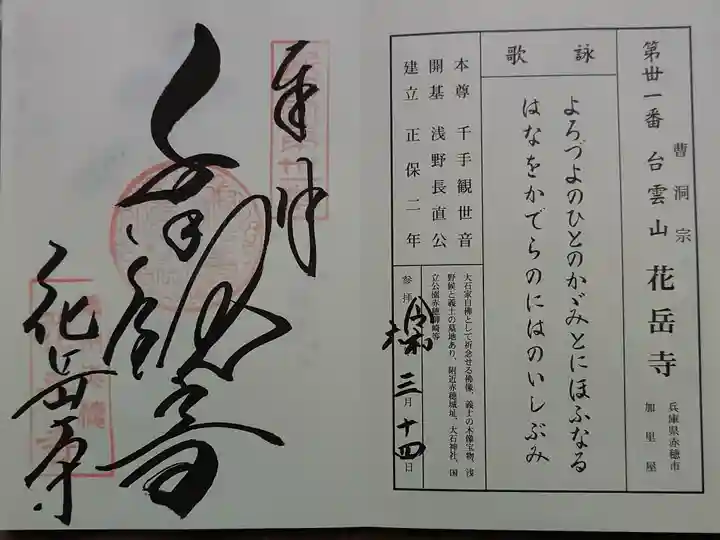 第丗一番 台雲山 花岳寺
曹洞宗
兵庫県赤穂市
加里屋
詠歌
よろづよのひとのかゞみとにほふなる
はなをかでらのにはのいしぶみ
本尊 千手観世音
開基 浅野長直公
建立 正保二年
大石家自佛として祈念せる佛像、義士の木像宝物、浅
野候と義士の墓地あり、附近赤穂城址、大石神社、国
立公園赤穂御崎等
参拝 令和 三月十四日
奉拝
千手観音
花岳寺